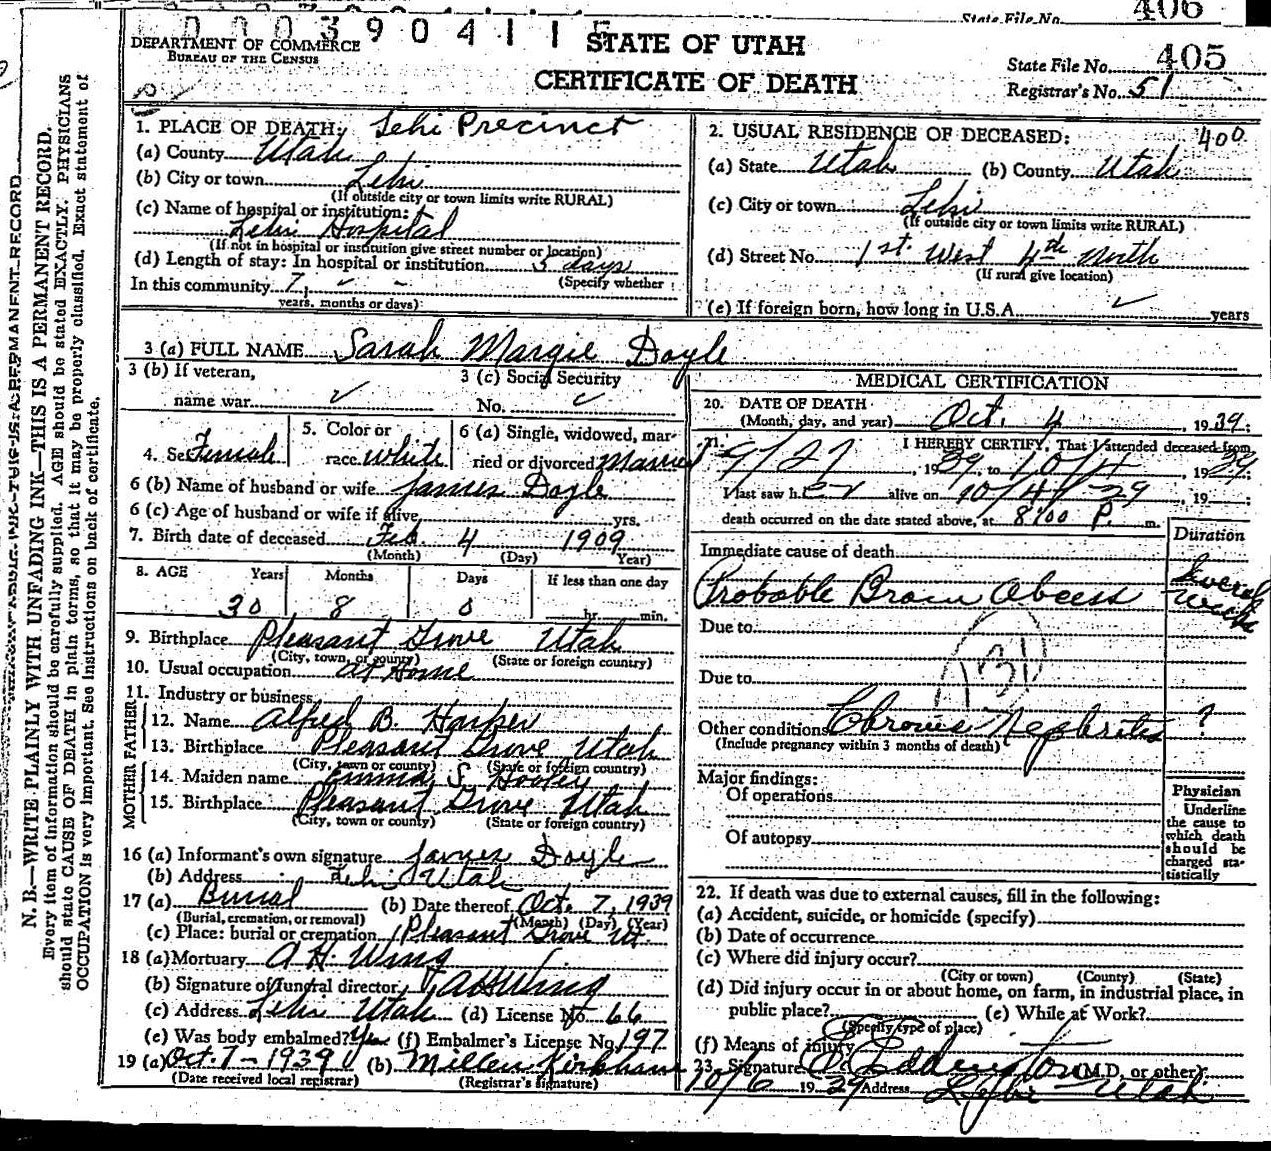 State File No. 406
0003904115
DEPARTMENT OF COMMERCE
BUREAU OF THE CENSUS
STATE OF UTAH
CERTIFICATE OF DEATH
State File No. 405
Registrar's No. 51
N. B.—WRITE PLAINLY WITH UNFADING INK—THIS IS A PERMANENT RECORD.
Every item of information should be carefully supplied. AGE should be stated EXACTLY. PHYSICIANS
should state CAUSE OF DEATH in plain terms, so that it may be properly classified. Exact statement of
OCCUPATION is very important. See instructions on back of certificate.
1. PLACE OF DEATH: Lehi Precinct
(a) County Utah
(b) City or town Lehi
(If outside city or town limits write RURAL)
(c) Name of hospital or institution:
Lehi Hospital
(If not in hospital or institution give street number or location)
(d) Length of stay: In hospital or institution 5 days
(Specify whether
In this community 7, ✓ -
years, months or days)
2. USUAL RESIDENCE OF DECEASED: 400
(a) State Utah (b) County Utah
(c) City or town Lehi
(If outside city or town limits write RURAL)
(d) Street No. 1st. West 4th North
(If rural give location)
(e) If foreign born, how long in U.S.A. ✓ years
3 (a) FULL NAME Sarah Margie Doyle
3 (b) If veteran,
name war ✓
3 (c) Social Security
No. ✓
4. Sex Female
5. Color or
race white
6 (a) Single, widowed, mar-
ried or divorced Married
6 (b) Name of husband or wife James Doyle
6 (c) Age of husband or wife if alive yrs.
7. Birth date of deceased Feb. 4 1909
(Month) (Day) Year)
8. AGE Years Months Days If less than one day
30 8 0 hr. min.
9. Birthplace Pleasant Grove Utah
(City, town, or county) (State or foreign country)
10. Usual occupation at Home
11. Industry or business
FATHER
12. Name Alfred B. Harper
13. Birthplace Pleasant Grove Utah
(City, town or county) (State or foreign country)
MOTHER
14. Maiden name Emma S. Hooley
15. Birthplace Pleasant Grove Utah
(City, town or county) (State or foreign country)
16 (a) Informant's own signature James Doyle
(b) Address Lehi Utah
17 (a) Burial (b) Date thereof Oct. 7, 1939
(Burial, cremation, or removal) (Month) (Day) (Year)
(c) Place: burial or cremation Pleasant Grove Ut.
18 (a) Mortuary A. H. Wing
(b) Signature of funeral director
(c) Address Lehi Utah (d) License No. 66
(e) Was body embalmed? Yes (f) Embalmer's License No. 197
19 (a) Oct. 7 - 1939 (b) Millen Kirkham
(Date received local registrar) (Registrar's signature)
MEDICAL CERTIFICATION
20. DATE OF DEATH
(Month, day, and year) Oct. 4, 1939;
21. I HEREBY CERTIFY, That I attended deceased from
9/27, 1939, to 10/4, 1939;
I last saw her alive on 10/4/39, 19 ;
death occurred on the date stated above, at 8:00 P. m.
Duration
Immediate cause of death
Probable Brain Abcess Several weeks
Due to
131
Due to
Other conditions Chronic Nephritis ?
(Include pregnancy within 3 months of death)
Major findings:
Of operations
Of autopsy
Physician
Underline
the cause to
which death
should be
charged sta-
tistically
22. If death was due to external causes, fill in the following:
(a) Accident, suicide, or homicide (specify)
(b) Date of occurrence
(c) Where did injury occur?
(City or town) (County) (State)
(d) Did injury occur in or about home, on farm, in industrial place, in
public place? (e) While at Work?
(Specify type of place)
(f) Means of injury
23. Signature Eddington (M.D. or other)
10/6 1939 Address Lehi Utah